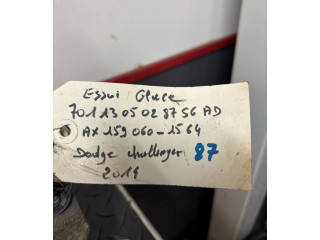 Essui Glace
701 13 05 02 87 56 AD
AX 159 060 - 15 64
Dodge challenger 87
2014